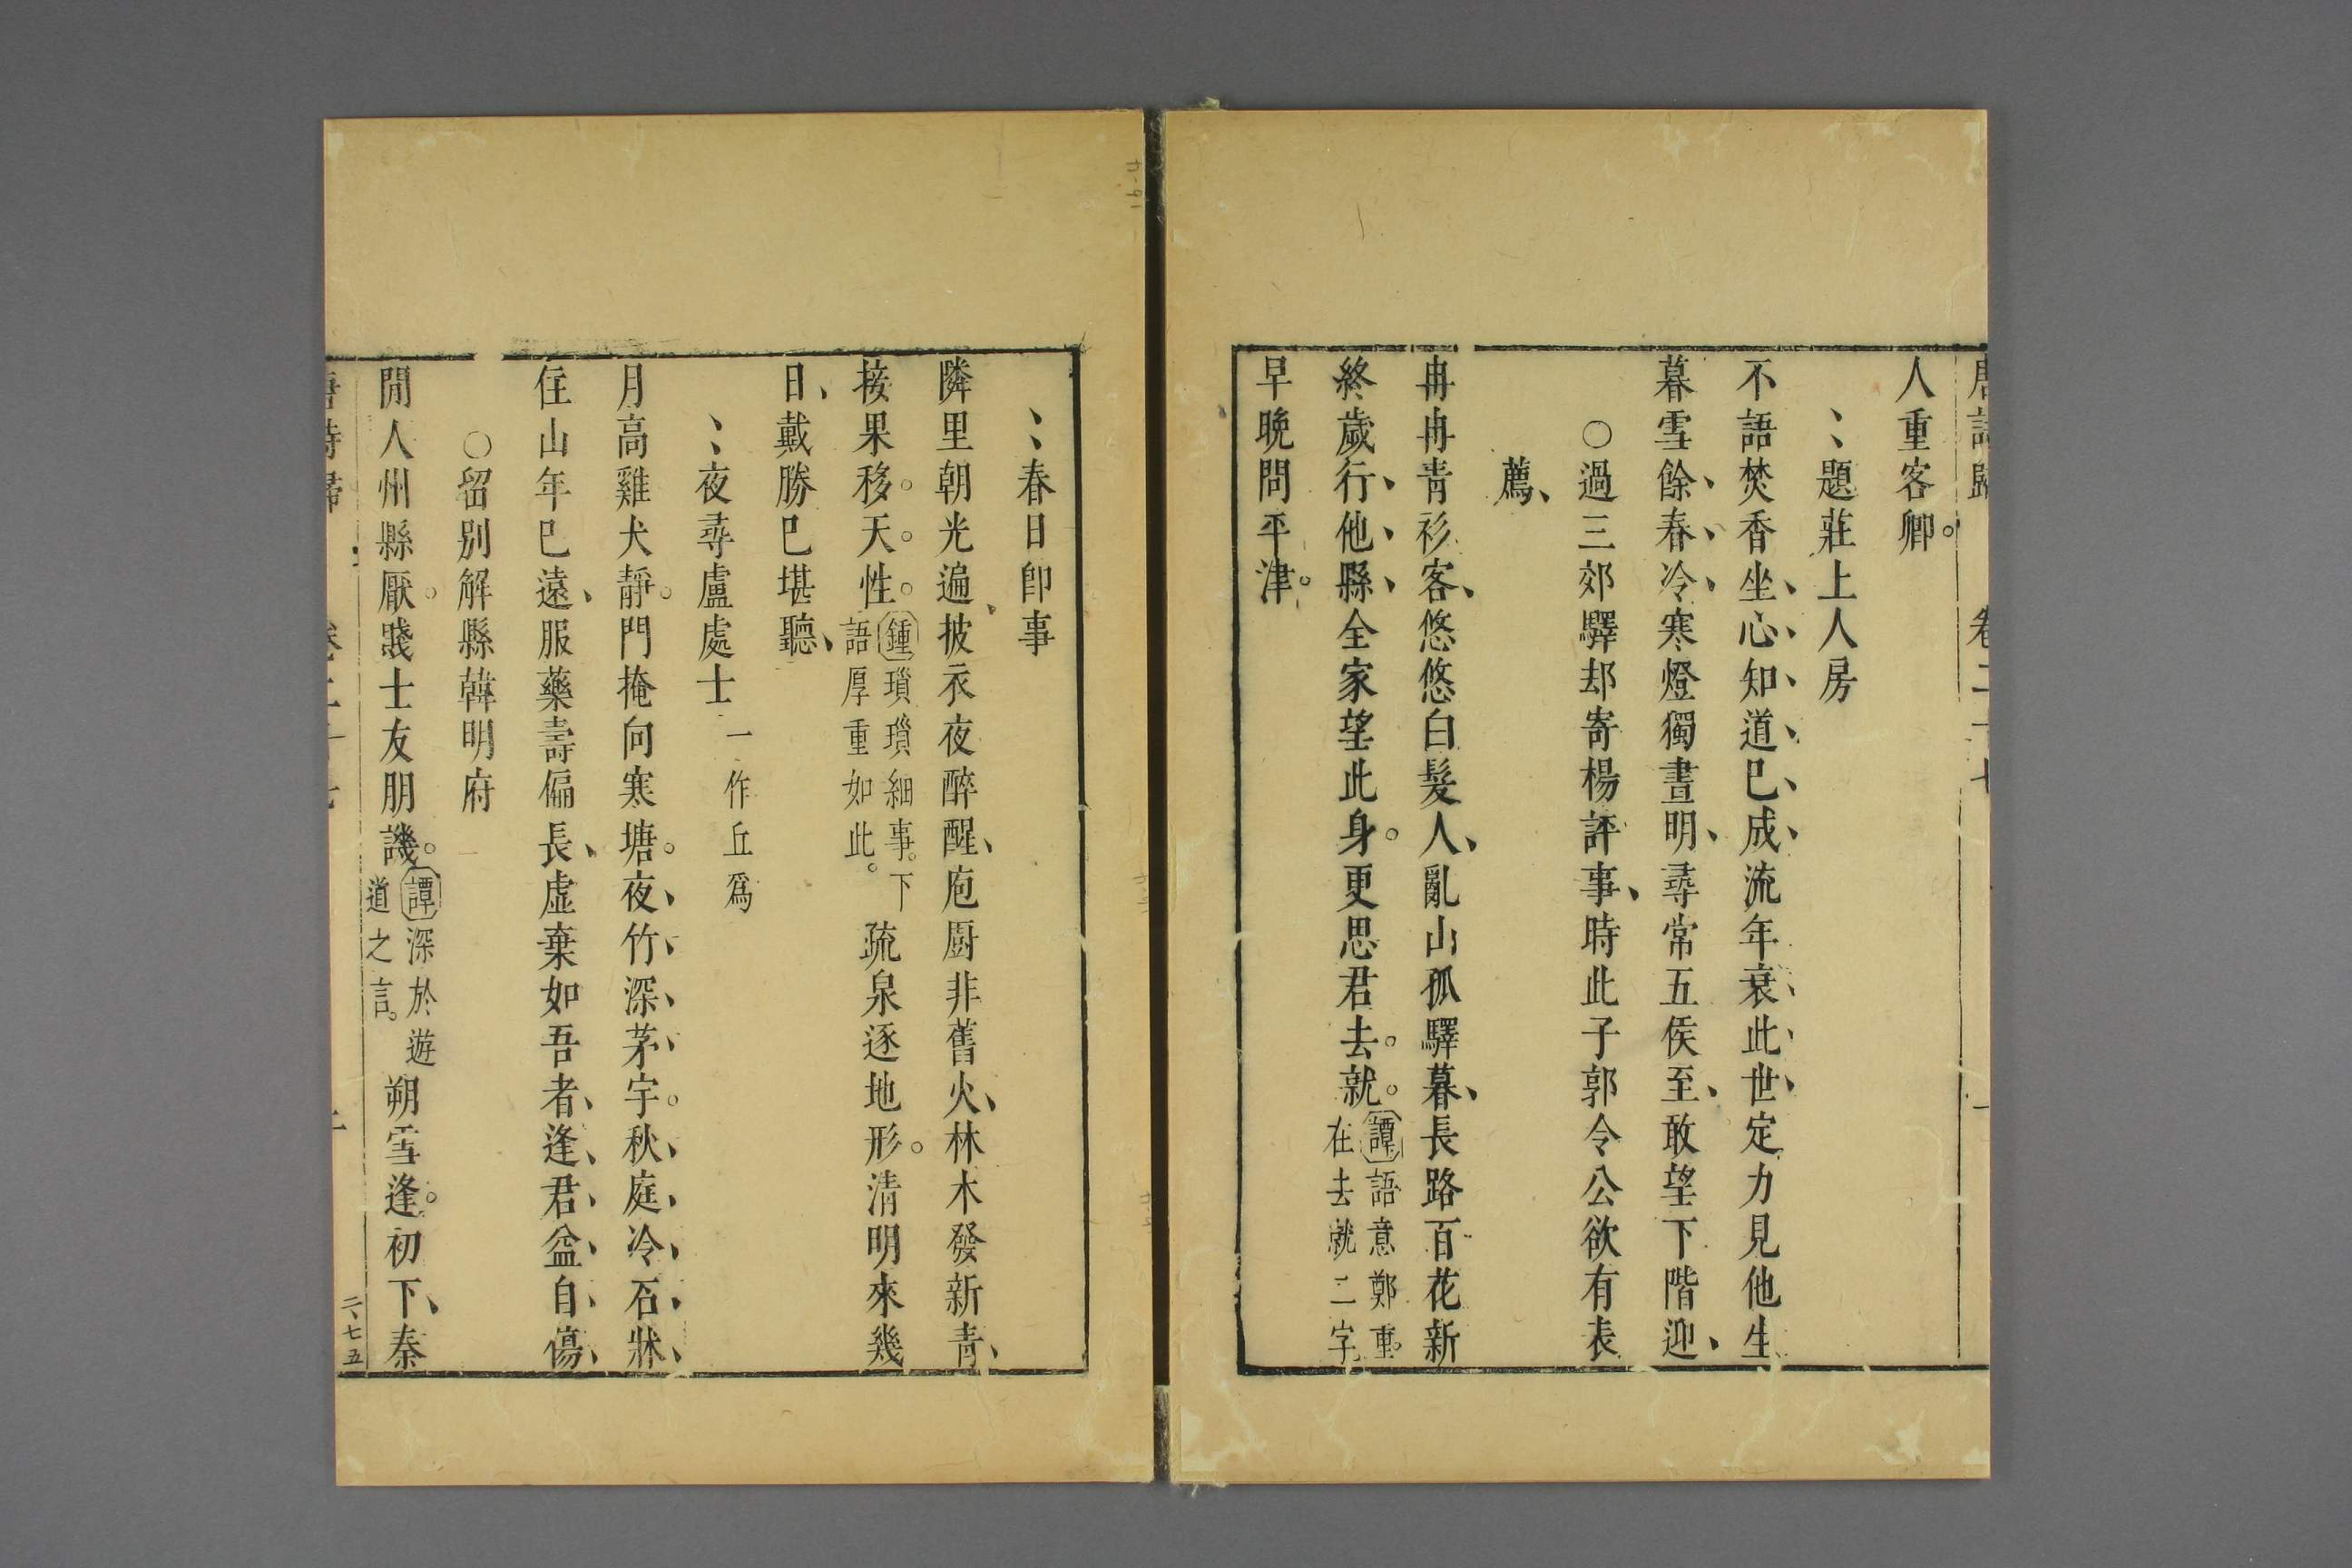 人重客卿。
題莊上人房
不語焚香坐、心知道已成、流年衰此世、定力見他生、
暮雪餘春冷、寒燈獨晝明、尋常五侯至、敢望下階迎、
○過三郊驛却寄楊評事、時此子郭令公欲有表
薦、
冉冉青衫客、悠悠白髮人、亂山孤驛暮、長路百花新
終歲行他縣、全家望此身。更思君去就。譚語意鄭重。在去就二字。
早晚問平津。
春日卽事
隣里朝光遍、披衣夜醉醒、庖厨非舊火、林木發新靑、
接果移天性。鍾瑣瑣細事。下語厚重如此。疏泉逐地形。清明來幾
日、戴勝已堪聽、
夜尋盧處士一作丘爲
月高雞犬靜。門掩向寒塘。夜竹深茅宇。秋庭冷石牀、
住山年已遠、服藥壽偏長、虛棄如吾者、逢君益自傷、
○留別解縣韓明府
閒人州縣厭。賤士友朋譏。譚深於遊道之言。朔雪逢初下、秦
二、七五